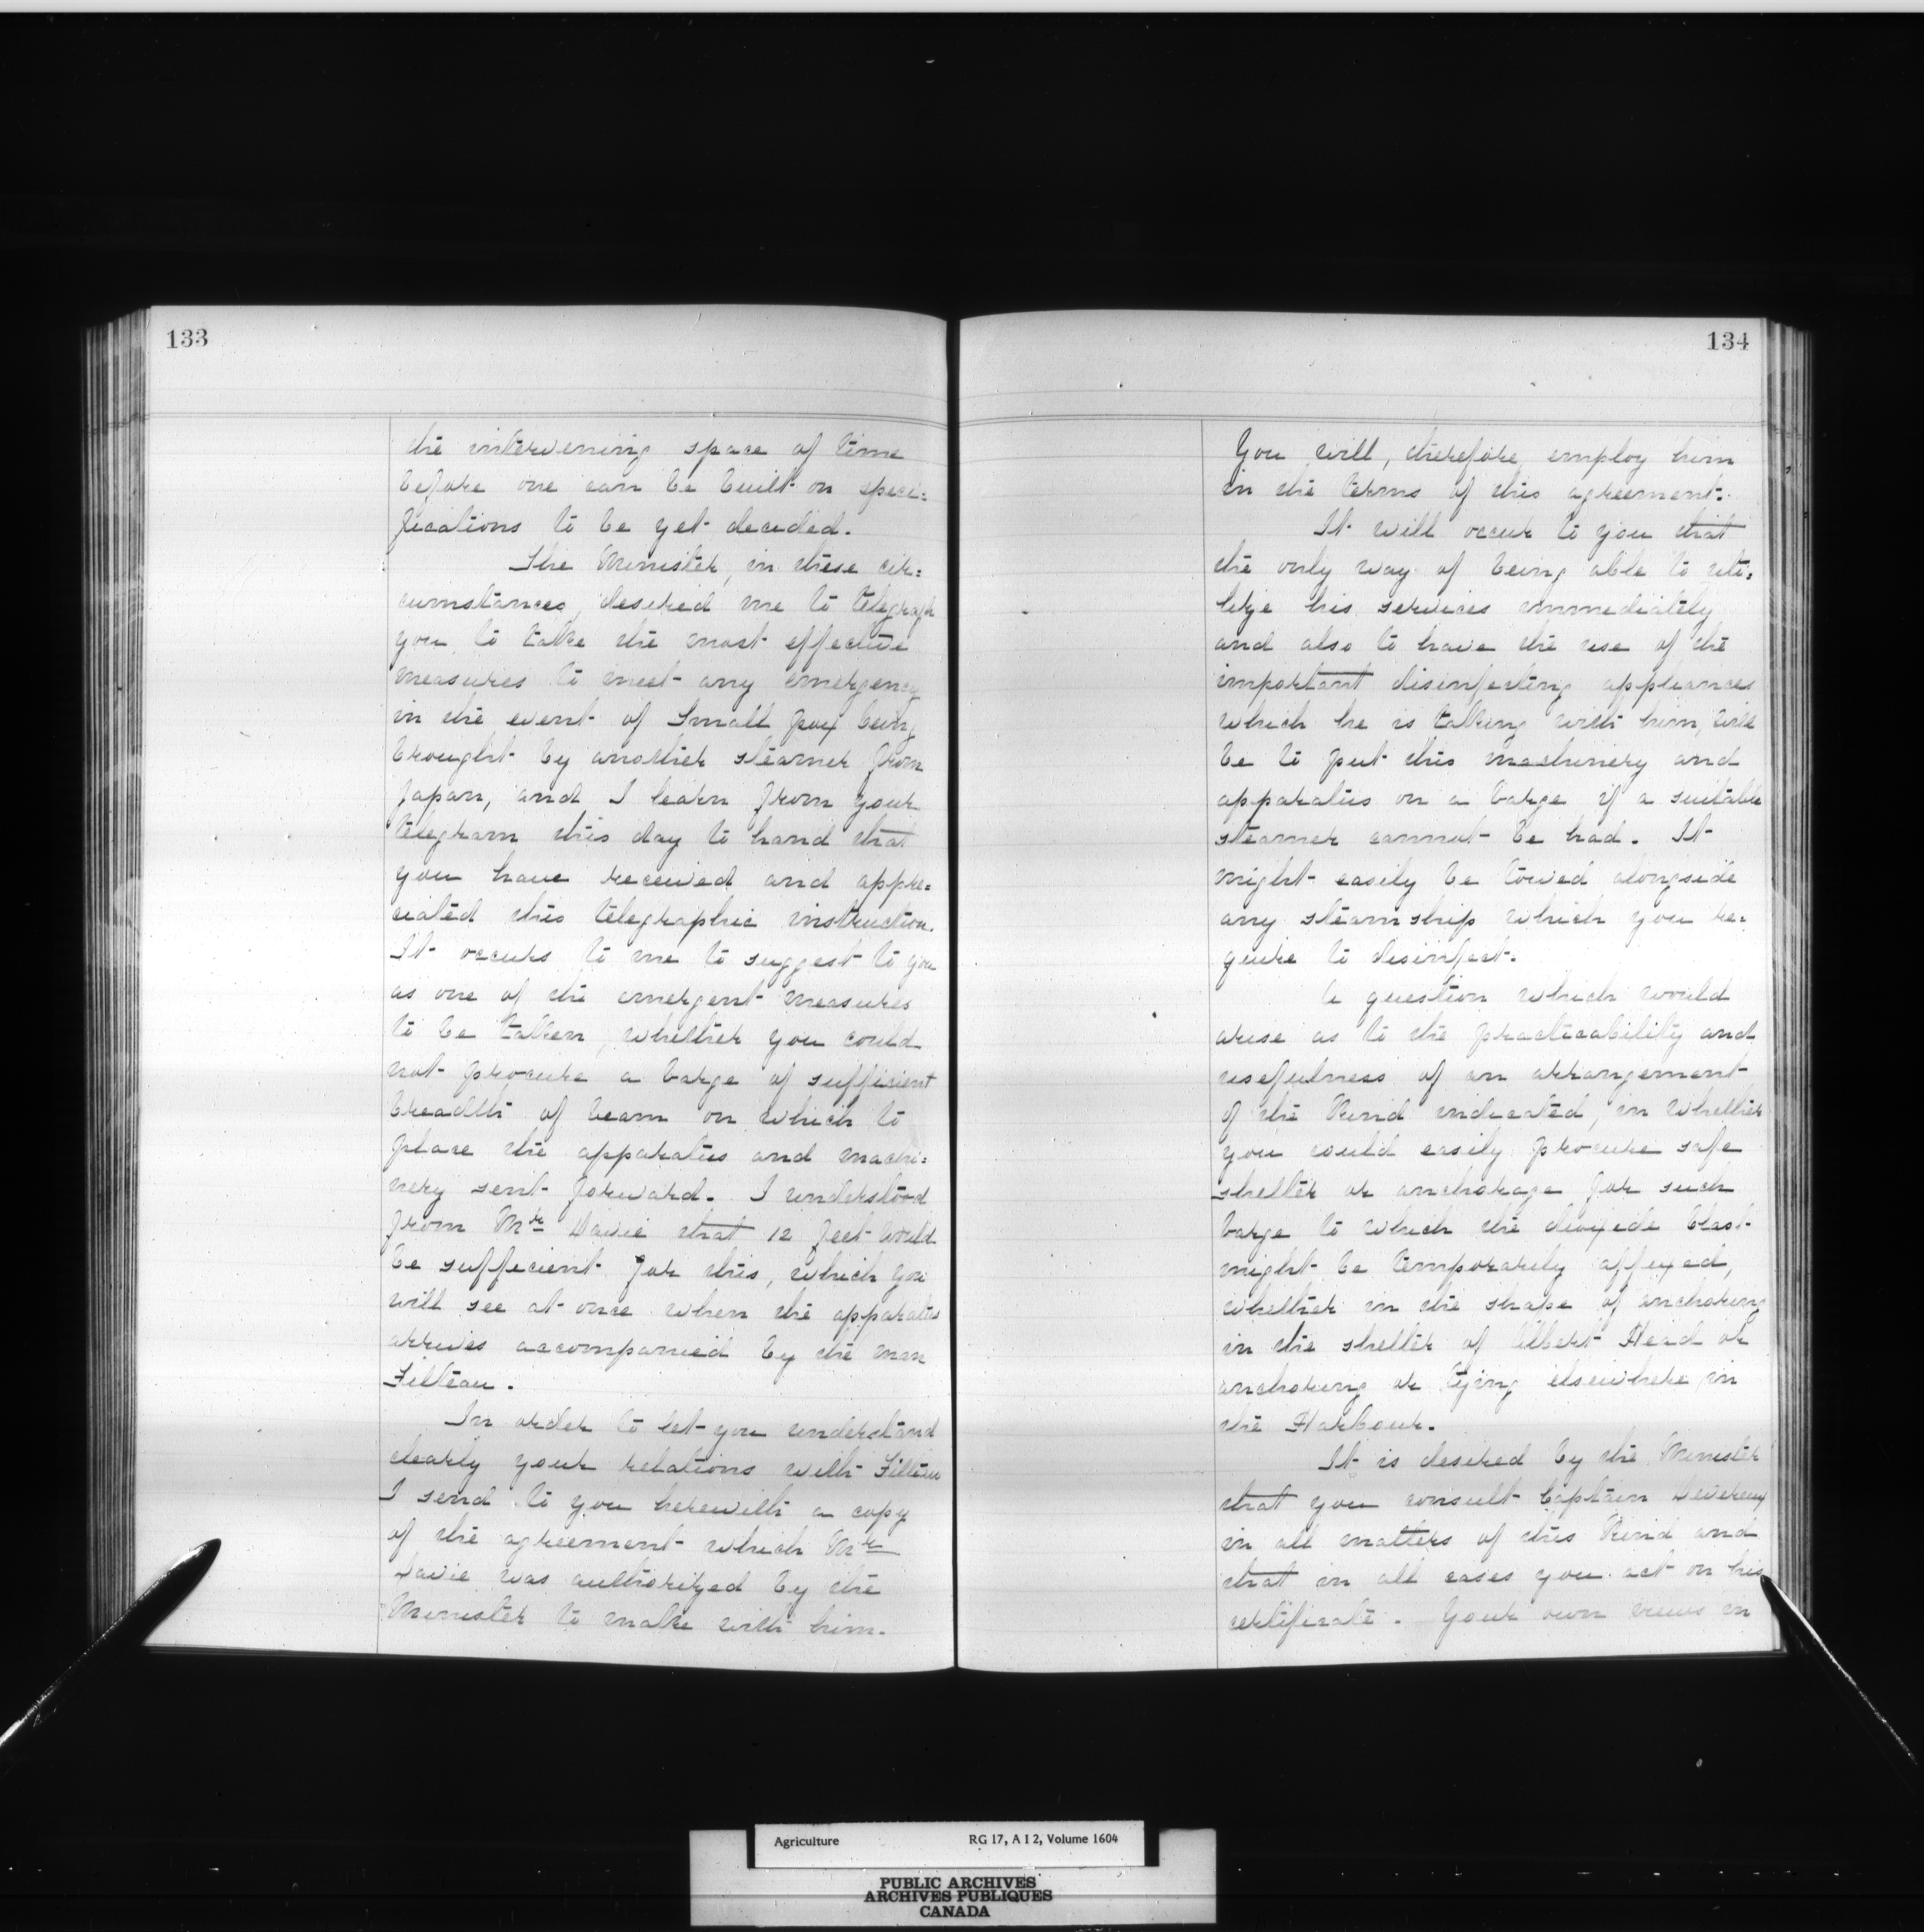 133
the intervening space of time
before one can be built on speci=
fications to be yet decided.
The Minister, in these cir=
cumstances, desired me to telegraph
you to take the most effective
measures to meet any emergency
in the event of Small pox being
brought by another steamer from
Japan, and I learn from your
telegram this day to hand that
you have received and appre=
ciated this telegraphic instruction.
It occurs to me to suggest to you
as one of the emergent measures
to be taken, whether you could
not procure a barge of sufficient
breadth of beam on which to
place the apparatus and machi=
nery sent forward. I understood
from Mr Davie that 12 feet would
be sufficient for this, which you
will see at once when the apparatus
arrives accompanied by the man
Filteau.
In order to let you understand
clearly your relations with Filteau
I send to you herewith a copy
of the agreement which Mr
Davie was authorized by the
Minister to make with him.
134
You will, therefore employ him
in the terms of this agreement.
It will occur to you that
the only way of being able to uti=
lize his services immediately
and also to have the use of the
important disinfecting appliances
which he is taking with him, will
be to put this machinery and
apparatus on a barge if a suitable
steamer cannot be had. It
might easily be towed alongside
any steamship which you re=
quire to disinfect.
A question which would
arise as to the practicability and
usefulness of an arrangement
of the kind indicated, in whether
you could easily procure safe
shelter or anchorage for such
barge to which the dioxide blast
might be temporarily affixed,
whether in the shape of anchoring
in the shelter of Albert Head or
anchoring or tying elsewhere in
the Harbour.
It is desired by the Minister
that you consult Captain Devereux
in all matters of this kind and
that in all cases you act on his
certificate. Your own views in
Agriculture RG 17, A I 2, Volume 1604
PUBLIC ARCHIVES
ARCHIVES PUBLIQUES
CANADA